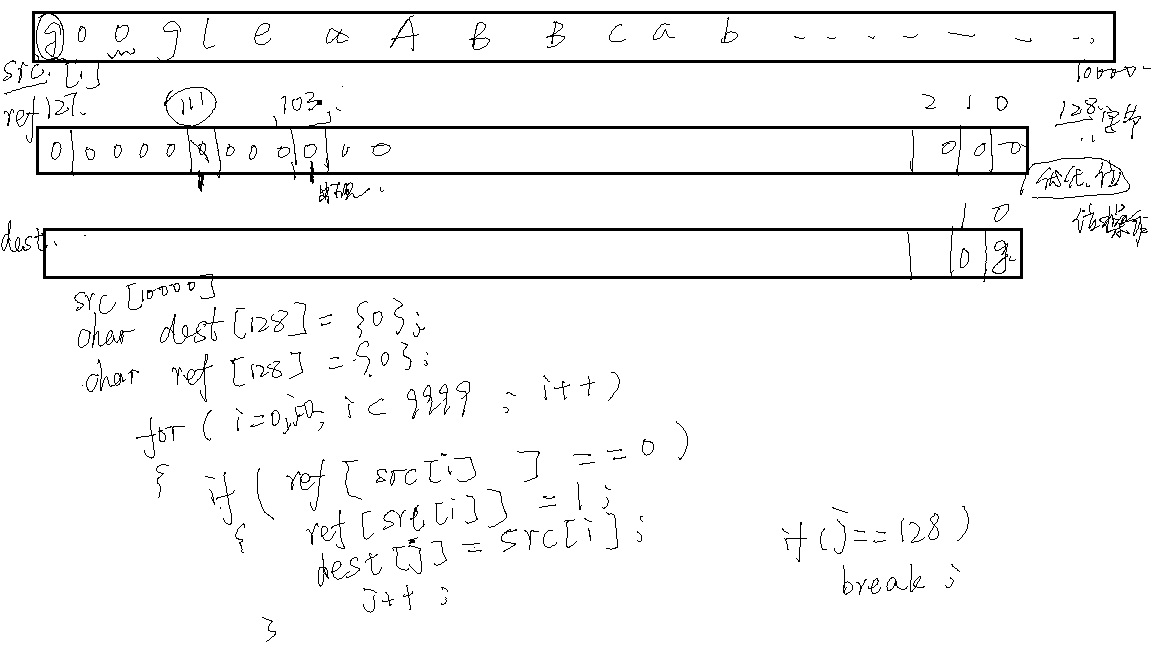 g o o g l e x A B B c a b
src. [i]
10000
ref 127. 111 103 2 1 0 128字节
0 0 0 0 0 0 0 0 0 0 0 0 0 0 0
出现
低优.位
位操作
1 0
dest. 0 g.
src [10000]
char dest [128] = {0};
char ref [128] = {0};
for ( i=0,j=0; i < 9999 ; i++ )
{ if ( ref [ src[i] ] == 0 )
{ ref [src[i]] = 1 ;
dest [j] = src[i] ;
j++ ;
}
if (j==128)
break ;